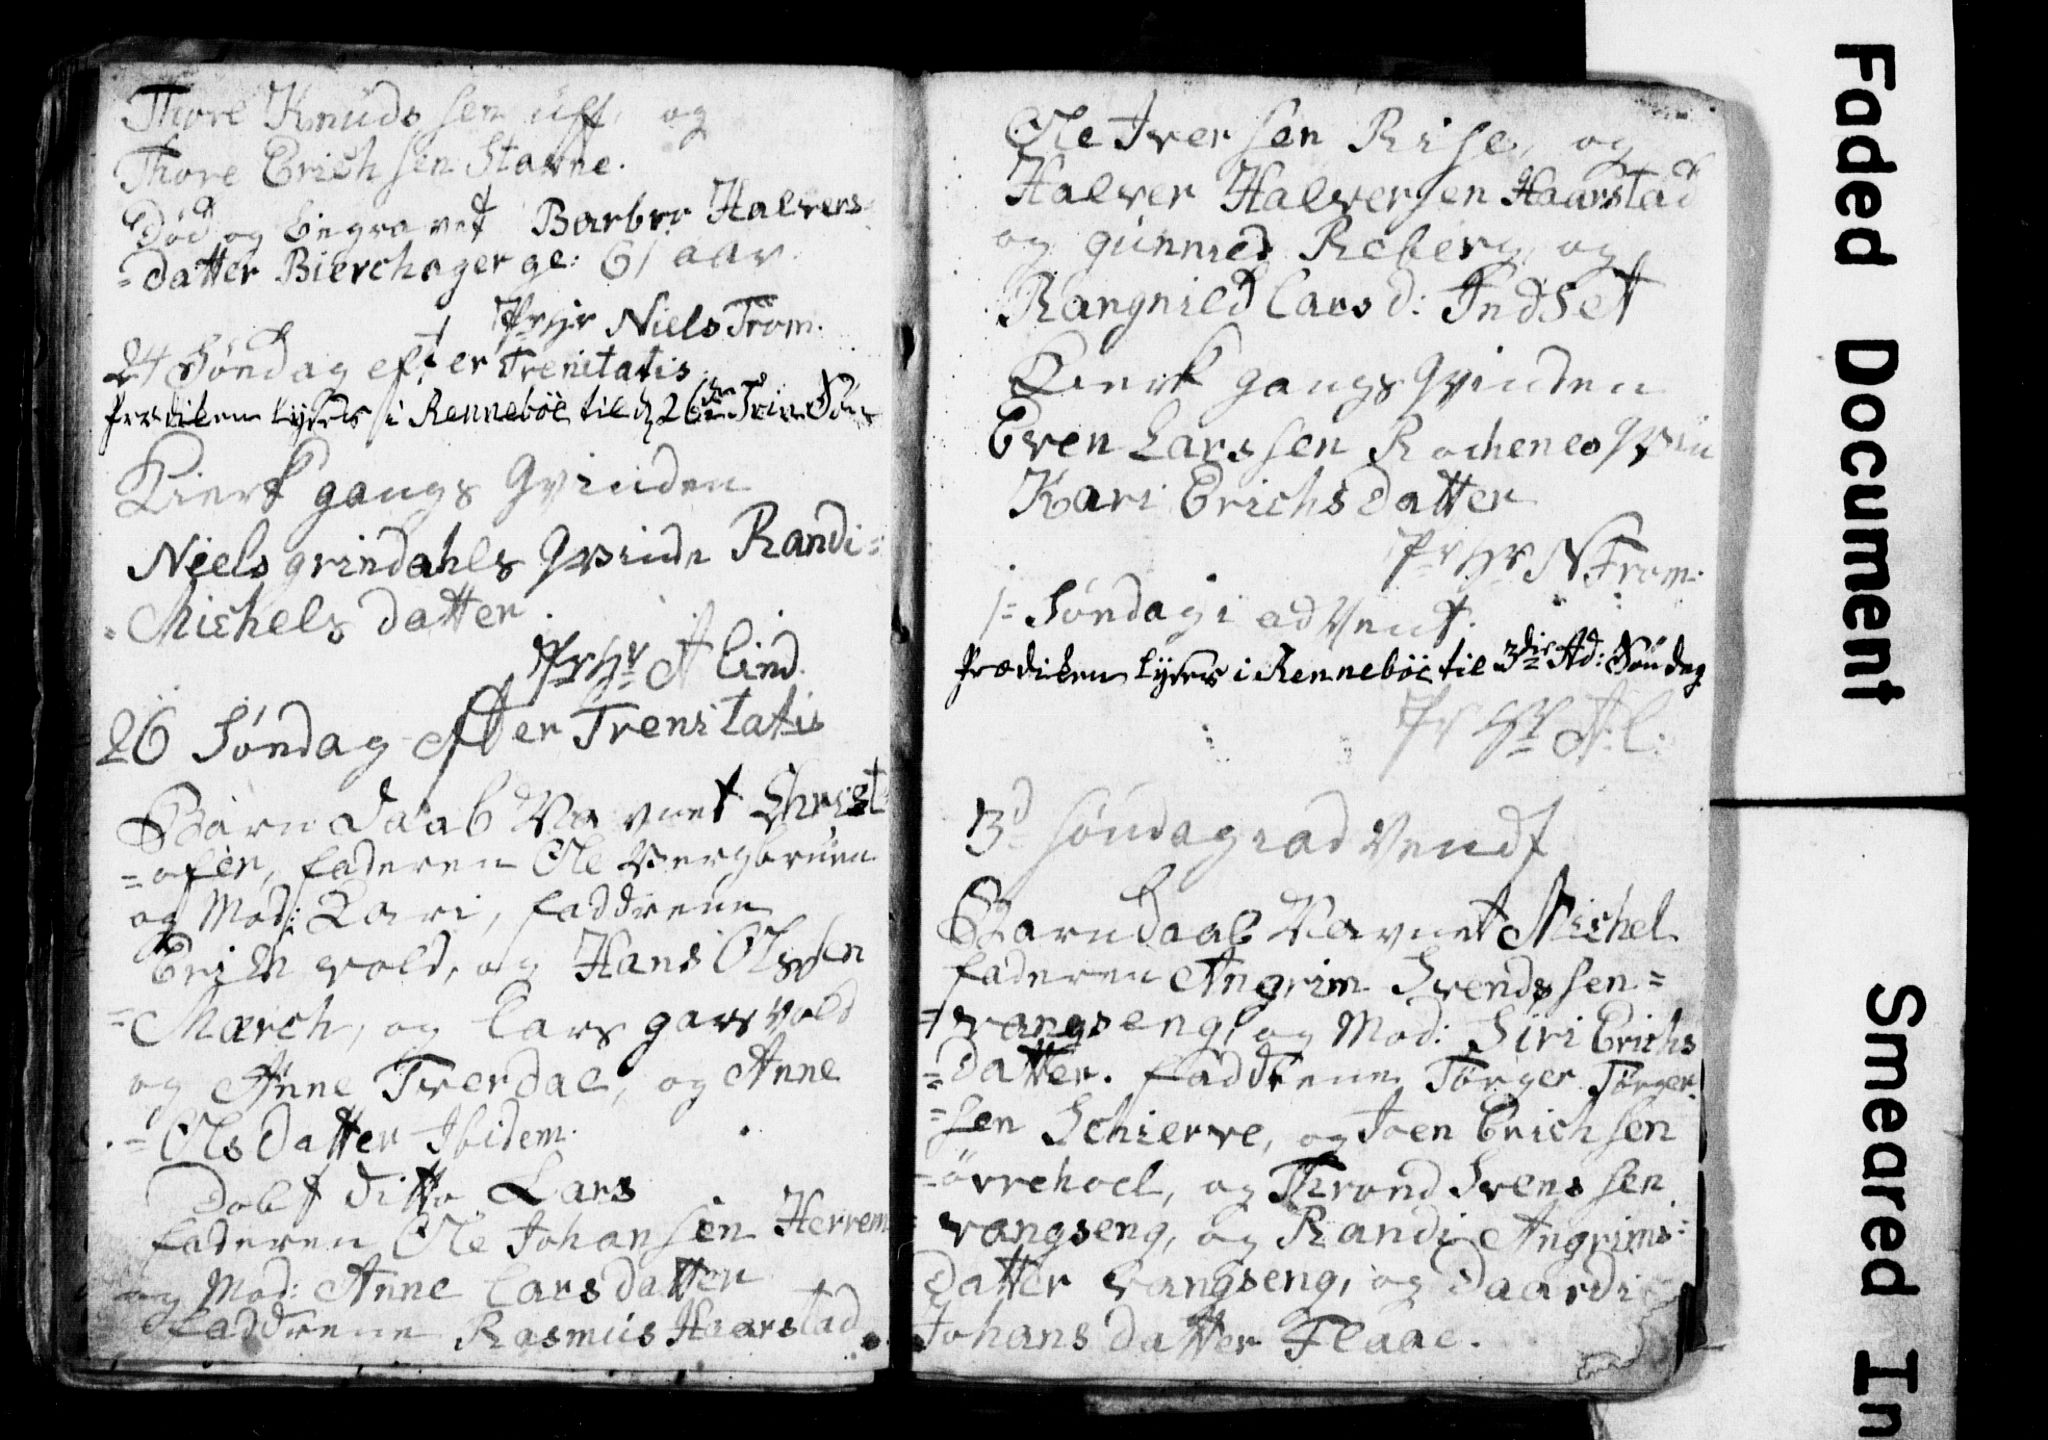 Thore Knuds sen Uff, og
Thore Erich sen Stavne.
Død og begravet Barbro Halvers=
=datter Bierchager ge: 61 aar.
Pr Hr Niels Trom.
24 Søndag efter Trenitatis
Prædiken lyses i Renneböe til d 26 Trin: Søn
Kierk gangs Qvinden
Niels grindahls Qvinde Randi=
=Michels datter
Pr Hr A Lind.
26 Søndag efter Trenitatis
Barn daab Navnet Christ=
=ofer, faderen Ole Bergbruen
og Mod: Kari, faddrene
Erich vold, og Hans Olssen
=Mærch, og Lars garsvold
og Anne Tverdal, og Anne
=Olsdatter Ibidem.
Døbt ditto Lars
faderen Ole Johansen Herrem
og Mod: Anne Larsdatter
faddrene Rasmus Haarstad
Ole Iversen Rise, og
Halver Halversen Haarstad
og gunnild Reberg, og
Rangnild Lars d: Indset
Kierk gangs Qvinden
Even Larssen Rochenes Qvin
Kari Erichsdatter
Pr Hr N Trom.
1= Søndag i advent.
Prædiken lyses i Renneböe til 3die Ad: Söndag
Pr Hr A: L:
3d søndag i ad Vendt
Barndaab Navnet Michel
faderen Angrim Svendssen=
=vangseng, og Mod: Siri Erichs
=datter. faddrene Törger Törger=
=sen Schierve, og Joen Erichsen
=örrehoel, og Thrond Svenssen
vangseng, og Randi Angrims=
datter vangseng, og Daardi
Johansdatter Flaae.
Faded Document
Smeared In